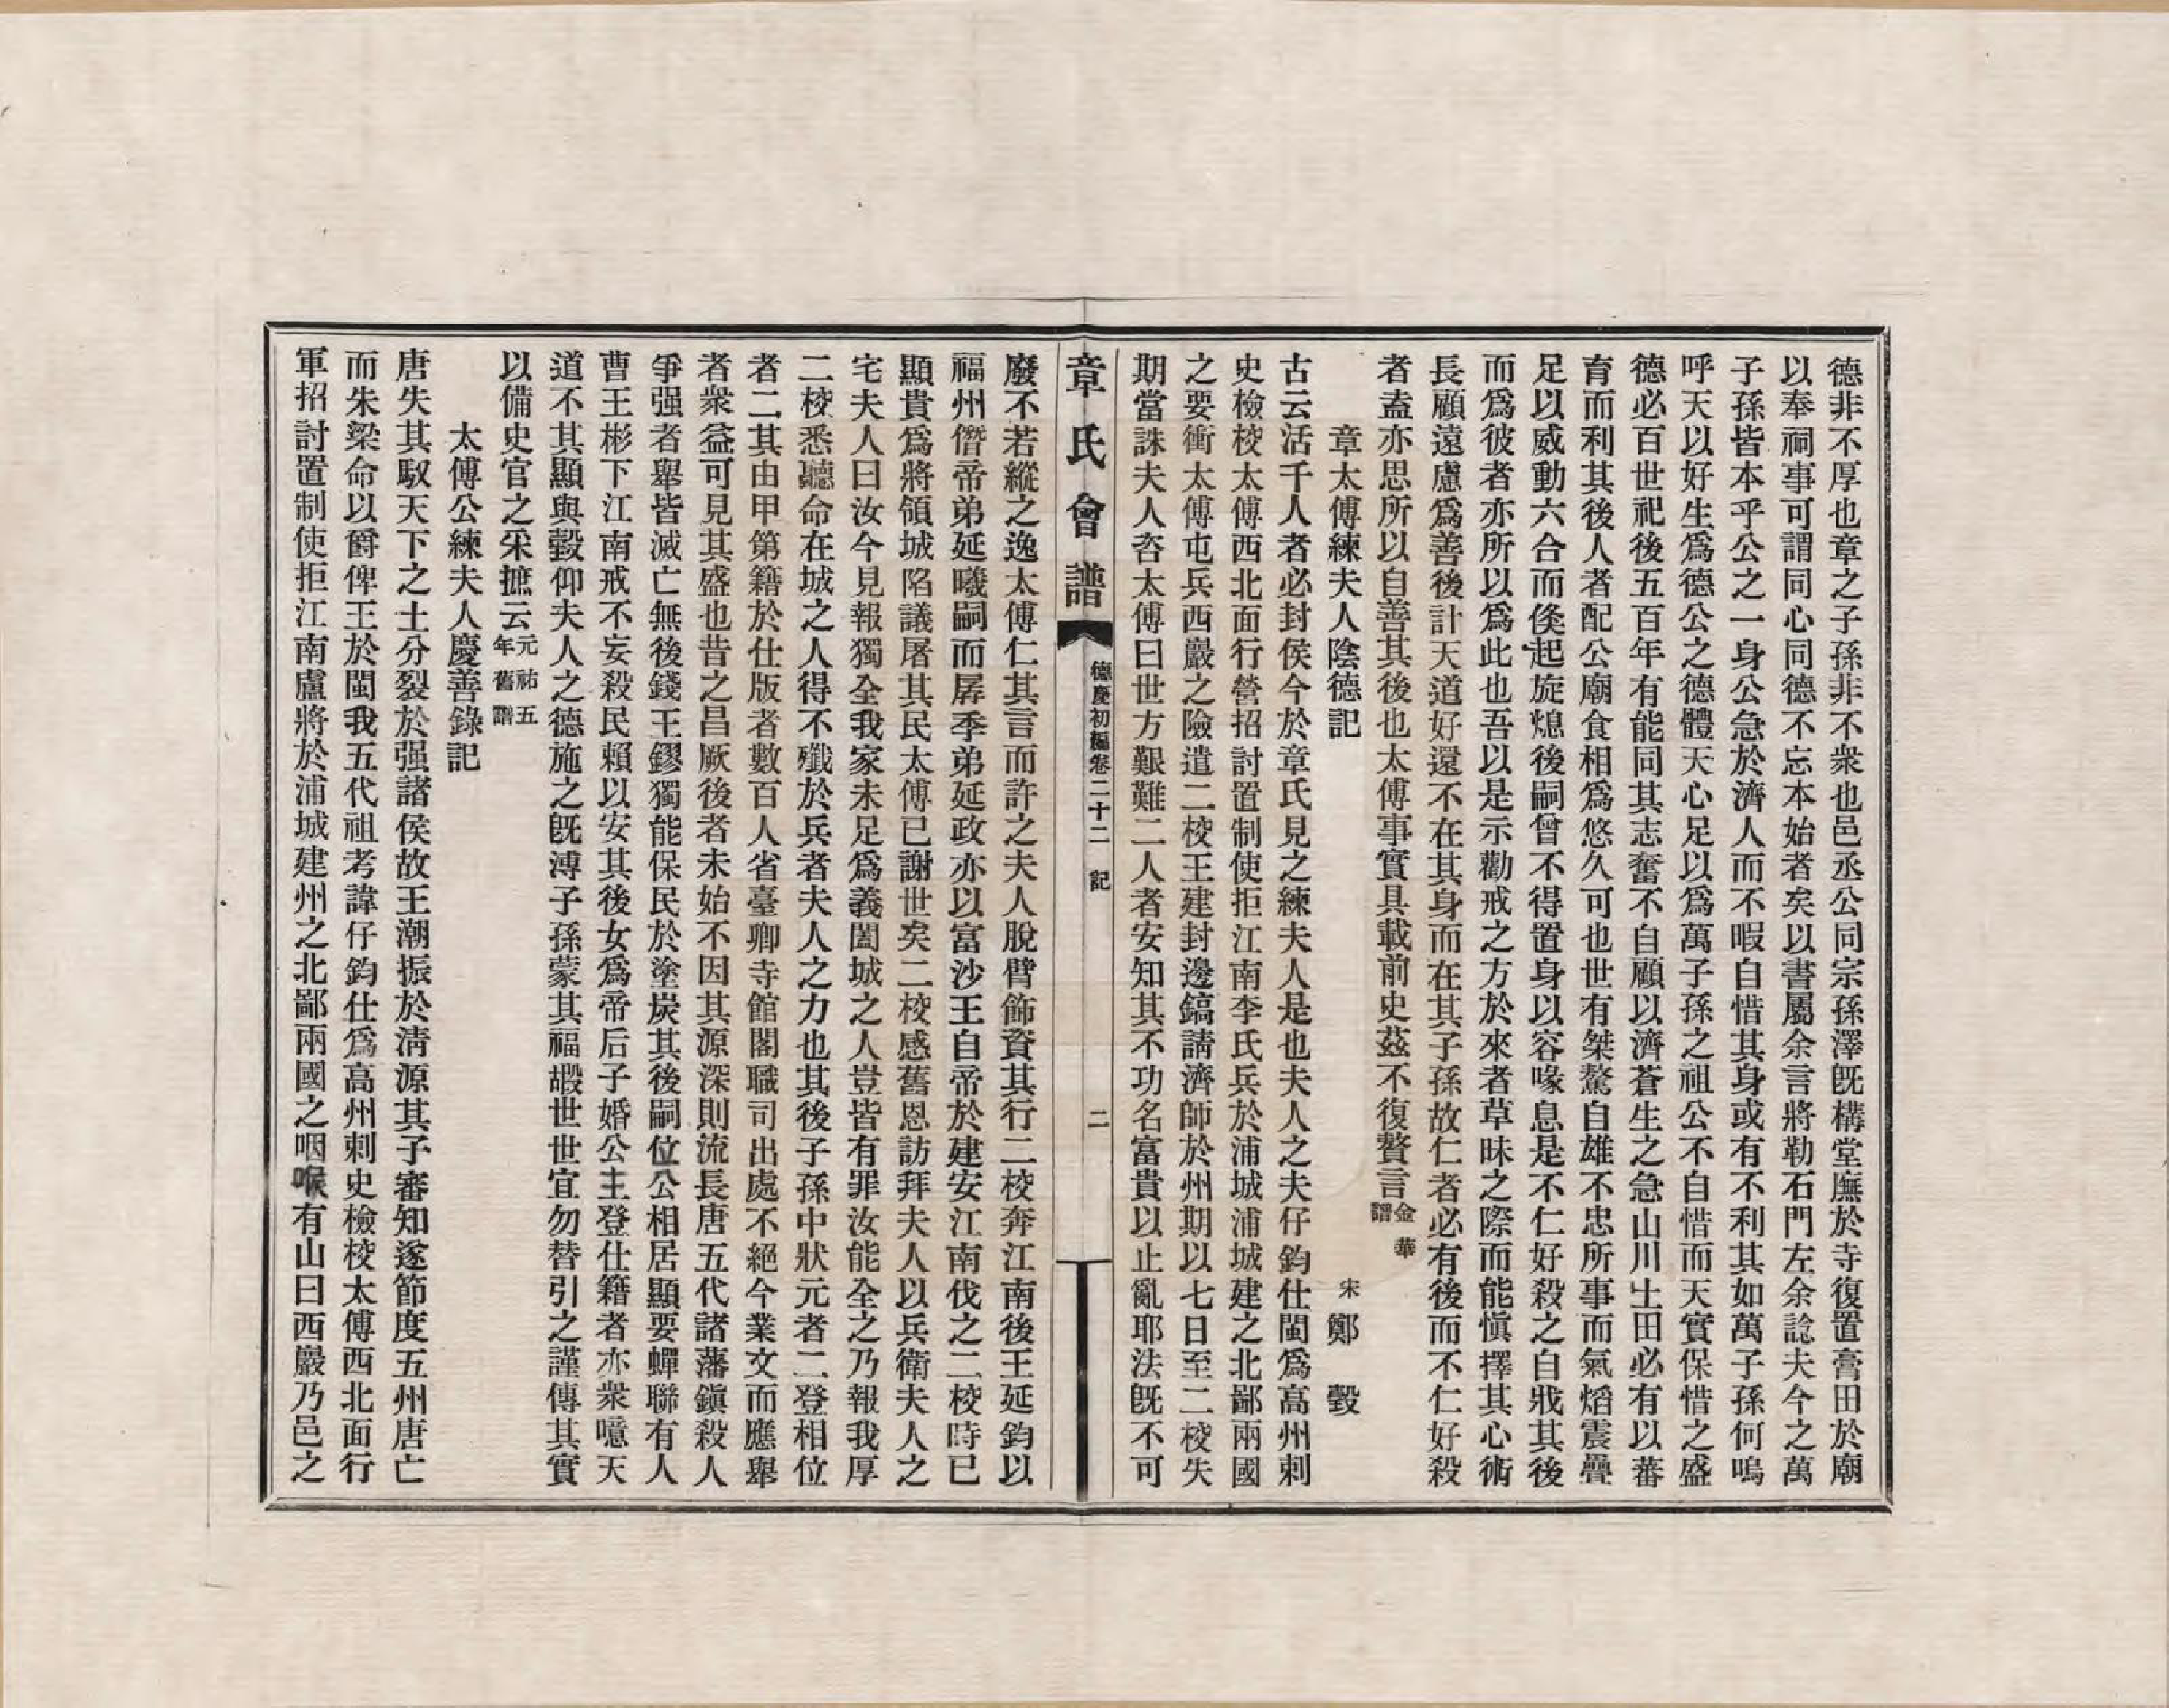 德非不厚也章之子孫非不衆也邑丞公同宗孫澤旣構堂廡於寺復置膏田於廟
以奉祠事可謂同心同德不忘本始者矣以書屬余言將勒石門左余諗夫今之萬
子孫皆本乎公之一身公急於濟人而不暇自惜其身或有不利其如萬子孫何嗚
呼天以好生爲德公之德體天心足以爲萬子孫之祖公不自惜而天實保惜之盛
德必百世祀後五百年有能同其志奮不自顧以濟蒼生之急山川土田必有以蕃
育而利其後人者配公廟食相爲悠久可也世有桀驁自雄不忠所事而氣熖震疊
足以威動六合而倐起旋熄後嗣曾不得置身以容喙息是不仁好殺之自戕其後
而爲彼者亦所以爲此也吾以是示勸戒之方於來者草昧之際而能愼擇其心術
長顧遠慮爲善後計天道好還不在其身而在其子孫故仁者必有後而不仁好殺
者盍亦思所以自善其後也太傅事實具載前史茲不復贅言金華譜
章太傅練夫人陰德記 宋 鄭 㲄
古云活千人者必封侯今於章氏見之練夫人是也夫人之夫仔鈞仕閩爲高州刺
史檢校太傅西北面行營招討置制使拒江南李氏兵於浦城浦城建之北鄙兩國
之要衝太傅屯兵西巖之險遣二校王建封邊鎬請濟師於州期以七日至二校失
期當誅夫人咨太傅曰世方艱難二人者安知其不功名富貴以止亂耶法旣不可
章氏會譜 德慶初編卷二十二 記 二
廢不若縱之逸太傅仁其言而許之夫人脫臂飾資其行二校奔江南後王延鈞以
福州僭帝弟延曦嗣而孱季弟延政亦以富沙王自帝於建安江南伐之二校時已
顯貴爲將領城陷議屠其民太傅已謝世矣二校感舊恩訪拜夫人以兵衛夫人之
宅夫人曰汝今見報獨全我家未足爲義闔城之人豈皆有罪汝能全之乃報我厚
二校悉聽命在城之人得不殲於兵者夫人之力也其後子孫中狀元者二登相位
者二其由甲第籍於仕版者數百人省臺卿寺館閣職司出處不絕今業文而應舉
者衆益可見其盛也昔之昌厥後者未始不因其源深則流長唐五代諸藩鎭殺人
爭强者舉皆滅亡無後錢王鏐獨能保民於塗炭其後嗣位公相居顯要蟬聯有人
曹王彬下江南戒不妄殺民賴以安其後女爲帝后子婚公主登仕籍者亦衆噫天
道不其顯與㲄仰夫人之德施之旣溥子孫蒙其福嘏世世宜勿替引之謹傳其實
以備史官之采摭云元祐五年舊譜
太傅公練夫人慶善錄記
唐失其馭天下之土分裂於强諸侯故王潮振於淸源其子審知遂節度五州唐亡
而朱梁命以爵俾王於閩我五代祖考諱仔鈞仕爲高州刺史檢校太傅西北面行
軍招討置制使拒江南盧將於浦城建州之北鄙兩國之咽喉有山曰西巖乃邑之